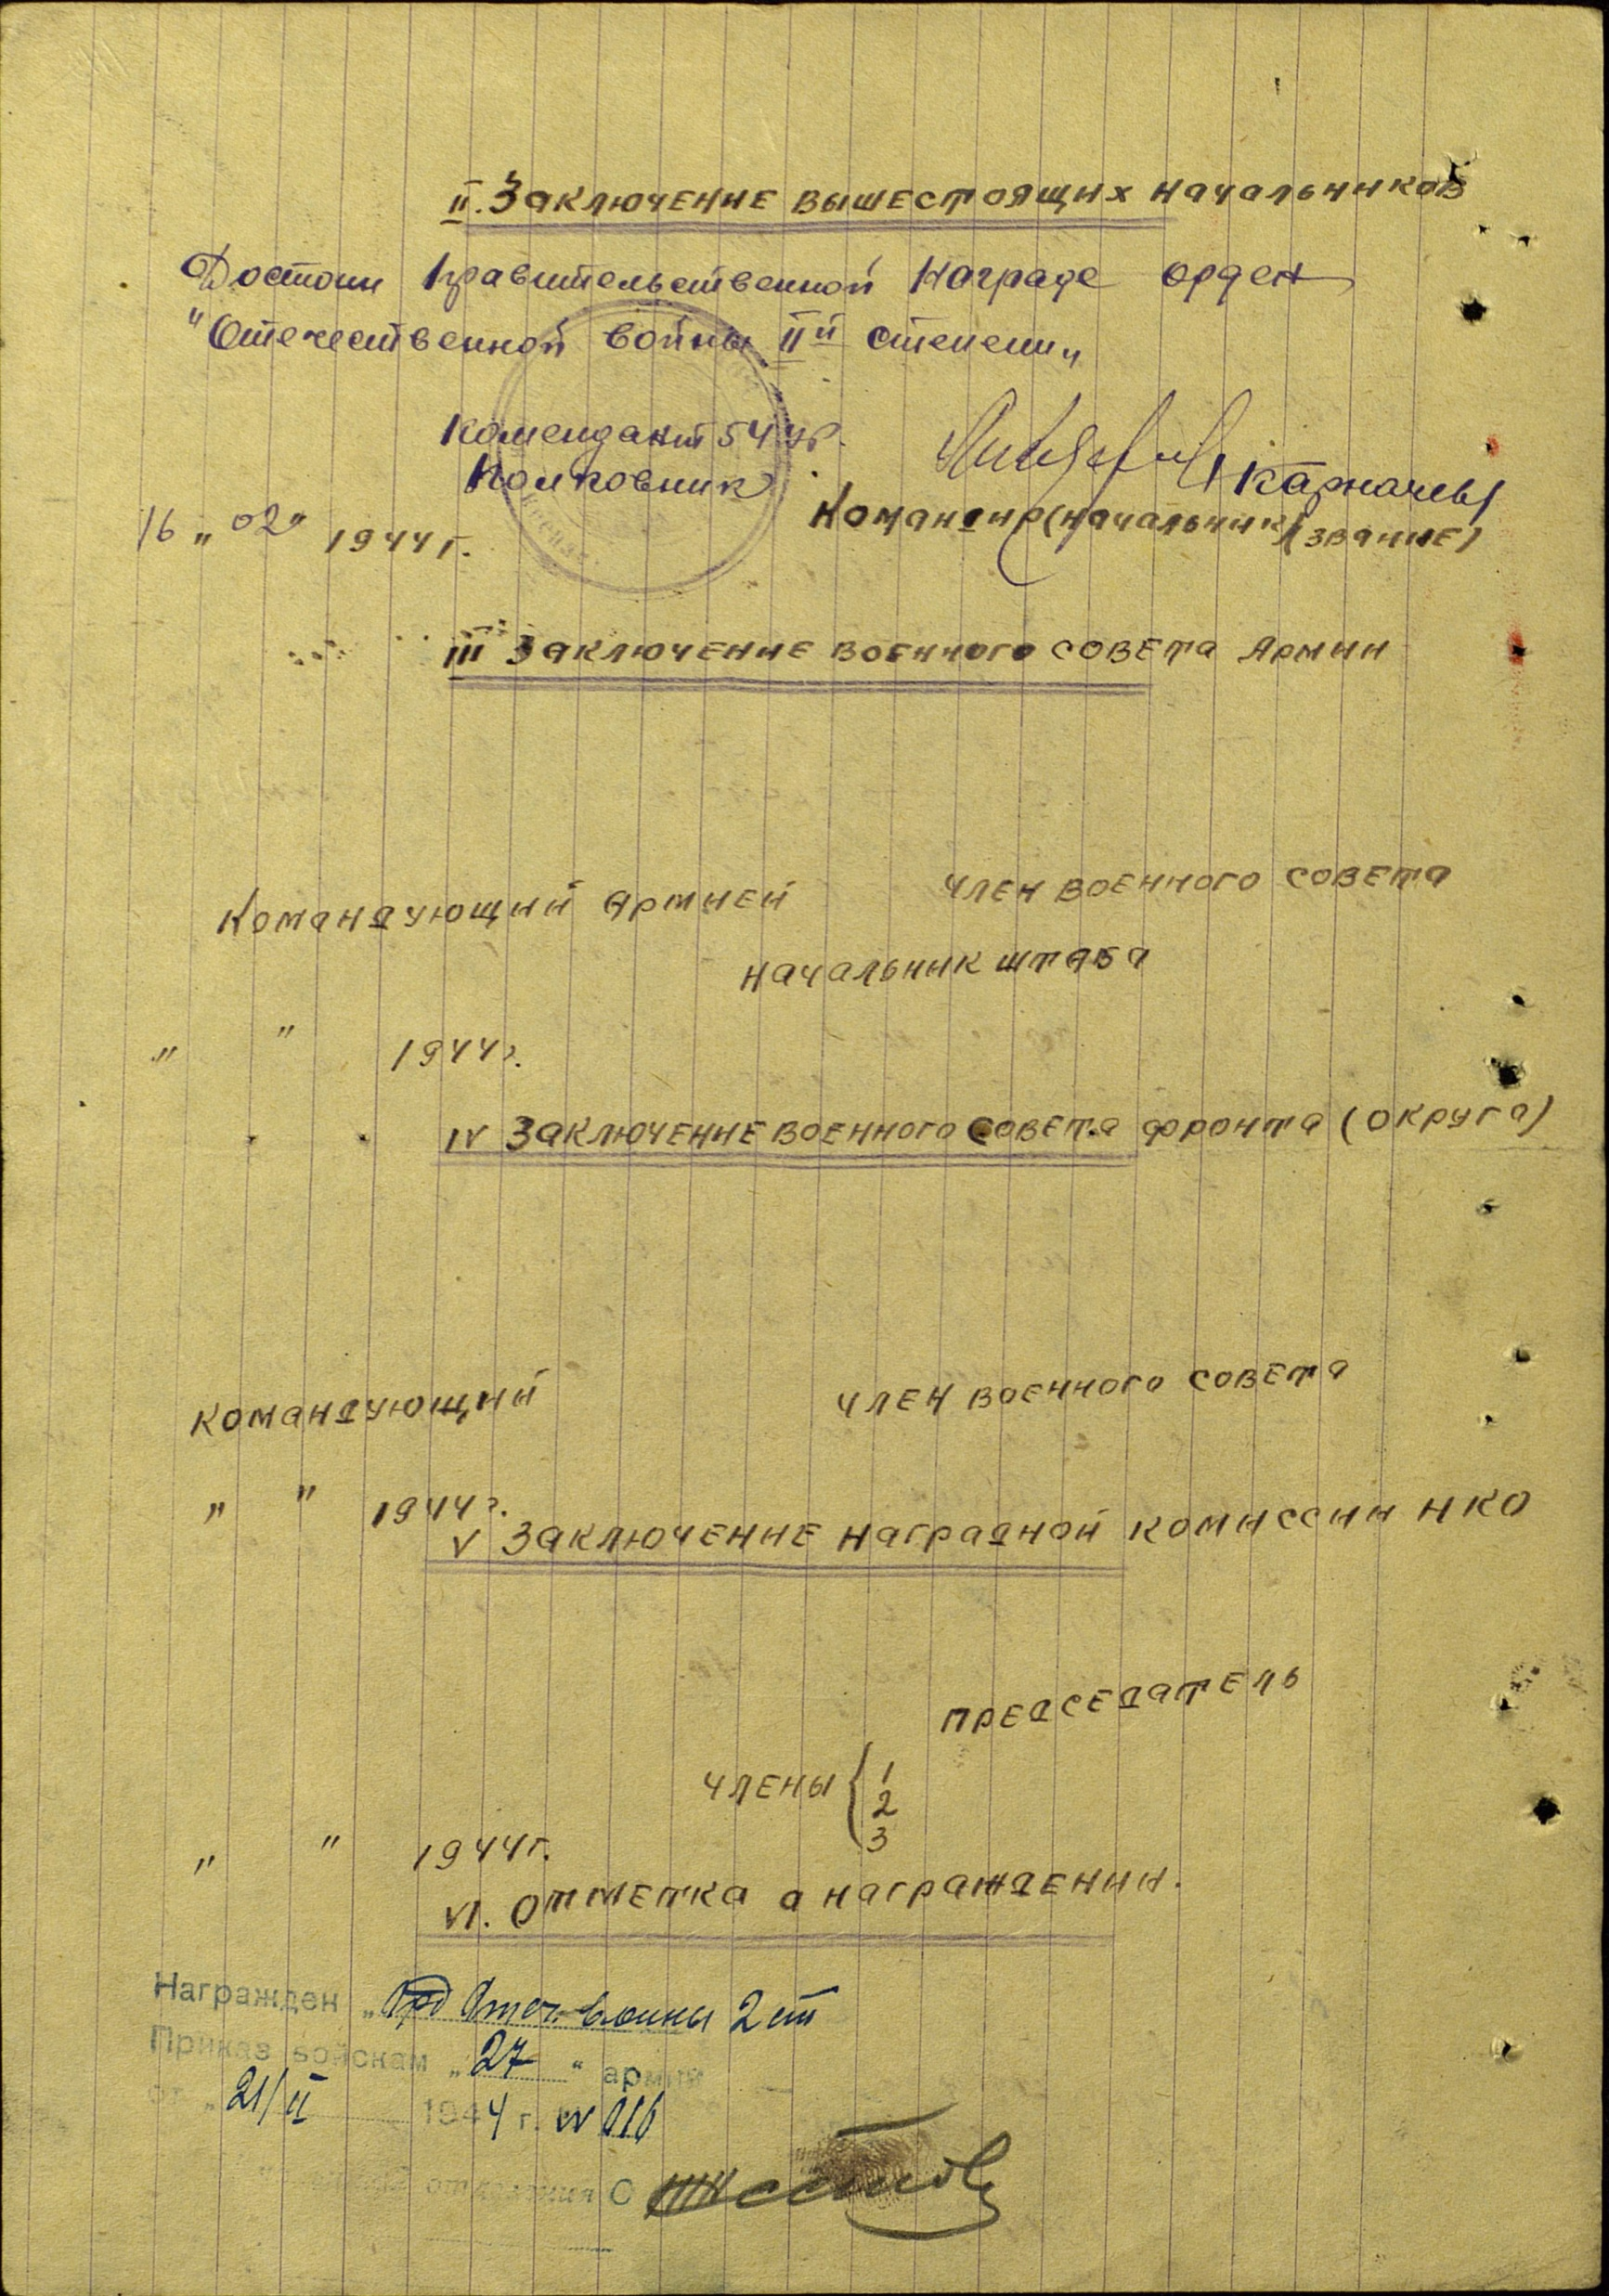 II. Заключение вышестоящих начальников
Достоин Правительственной Награде орден
"Отечественной войны II й степени"
Комендант 54 УР.
Полковник
/Карначев/
16 " 02" 1944 г.
Командир (начальник) (звание)
III Заключение военного совета Армии
Командующий Армией
Член военного совета
Начальник штаба
" " 1944 г.
IV Заключение военного совета фронта (округа)
Командующий
Член военного совета
" " 1944 г.
V Заключение наградной комиссии НКО
Председатель
Члены { 1
2
3
" " 1944 г.
VI. Отметка о награждении.
Награжден "Орд Отеч. войны 2 ст
Приказ войскам "27" армии
от "21/II 1944 г. № 016
отделения